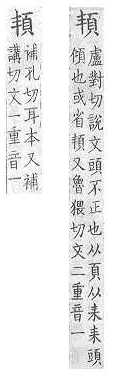 頛
盧對切說文頭不正也从頁从耒耒頭
傾也或省又魯猥切文二重音一
補孔切耳本又補
講切文一重音一